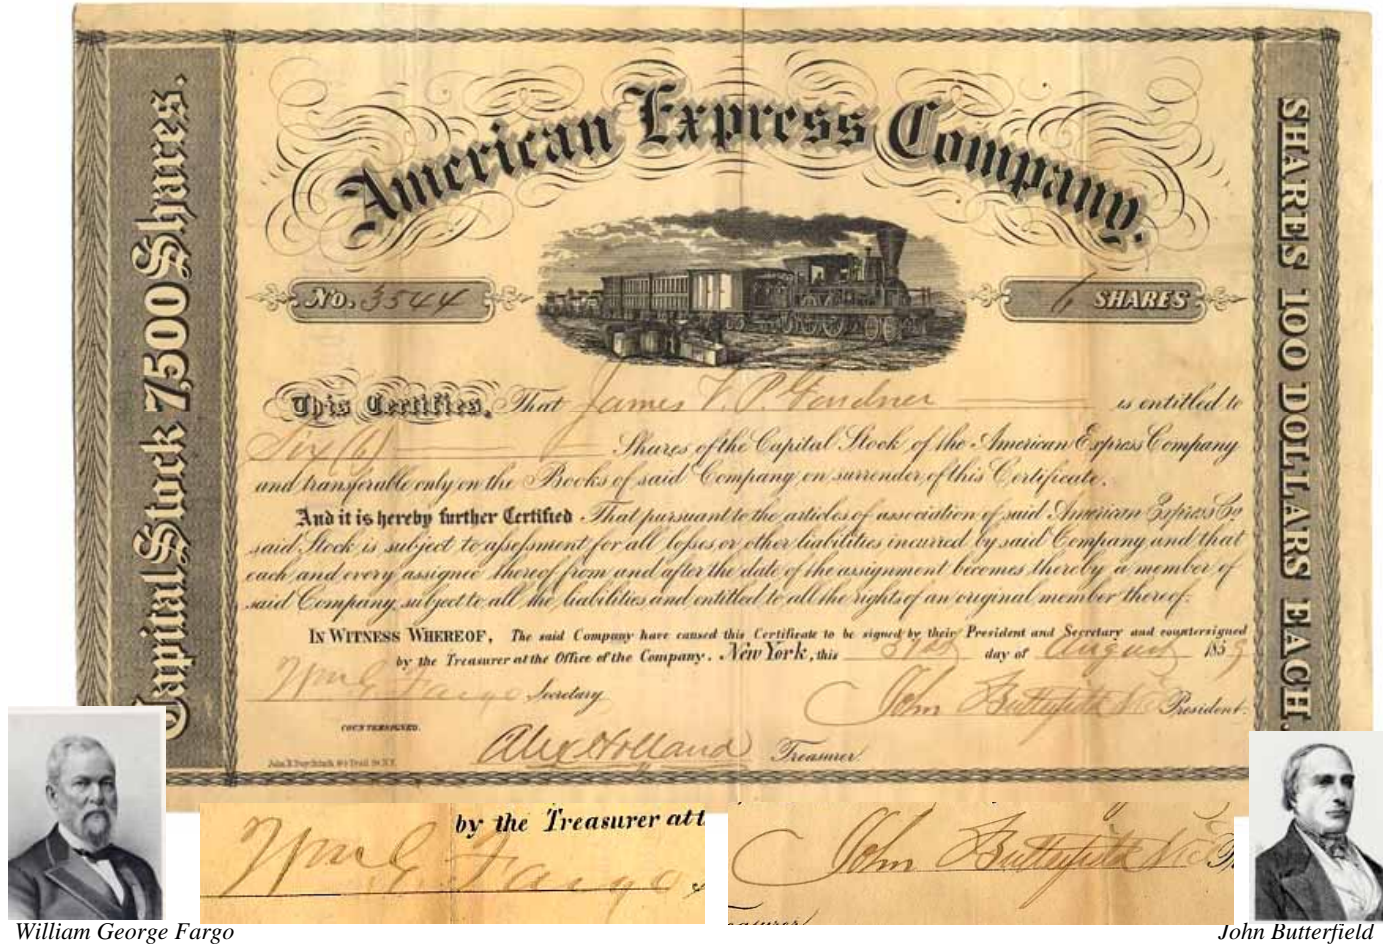 Capital Stock 7,500 Shares.
SHARES 100 DOLLARS EACH.
American Express Company.
No. 3544
6 SHARES
This Certifies, That James V. P. Gardner is entitled to
Six (6) Shares of the Capital Stock of the American Express Company
and transferable only on the Books of said Company on surrender of this Certificate.
And it is hereby further Certified That pursuant to the articles of association of said American Express Co
said Stock is subject to assessment for all losses or other liabilities incurred by said Company and that
each and every assignee thereof from and after the date of the assignment becomes thereby a member of
said Company, subject to all the liabilities and entitled to all the rights of an original member thereof.
IN WITNESS WHEREOF, The said Company have caused this Certificate to be signed by their President and Secretary and countersigned
by the Treasurer at the Office of the Company. New York, this 31st day of August 1859
Wm G Fargo Secretary
John Butterfield President.
COUNTERSIGNED.
Alex Holland Treasurer.
by the Treasurer at t
Wm G Fargo
John Butterfield
William George Fargo
John Butterfield